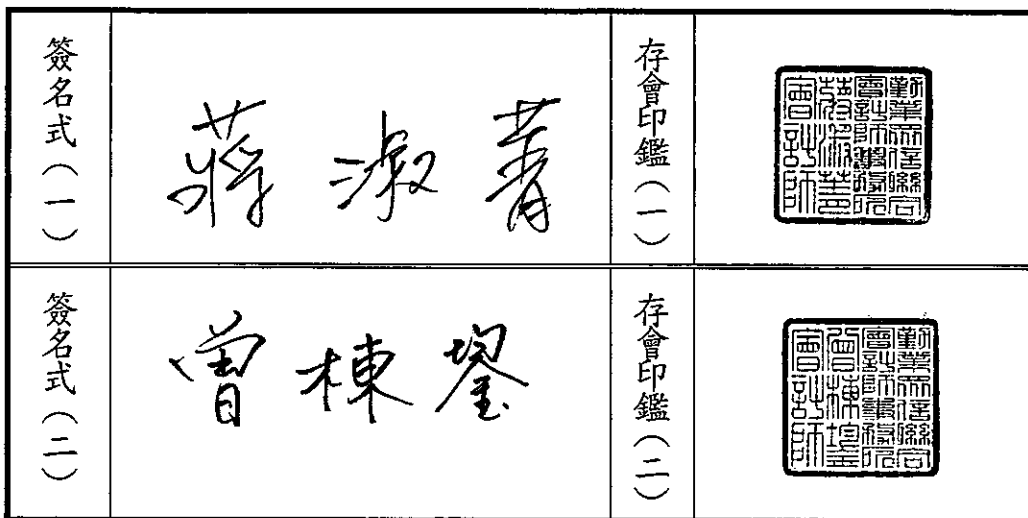 簽名式(一)
蔣淑菁
存會印鑑(一)
勤業眾信聯合
會計師事務所
蔣淑菁
會計師
簽名式(二)
曾棟鋆
存會印鑑(二)
勤業眾信聯合
會計師事務所
曾棟鋆
會計師